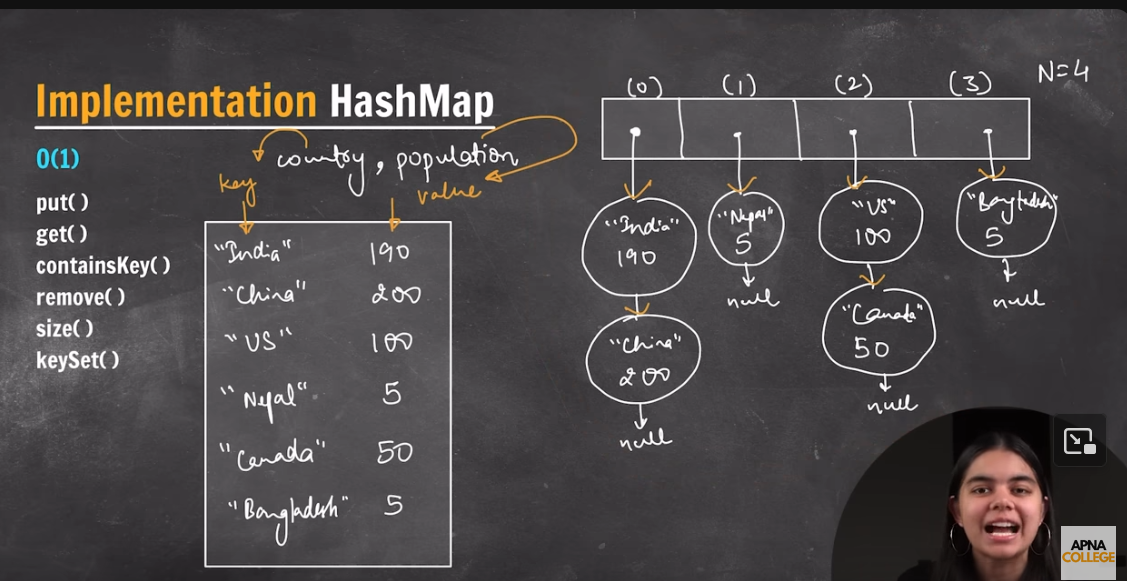 Implementation HashMap
O(1)
put( )
get( )
containsKey( )
remove( )
size( )
keySet( )
country, population
key
value
"India" 190
"China" 200
"US" 100
"Nepal" 5
"Canada" 50
"Bangladesh" 5
N=4
(0) (1) (2) (3)
"India"
190
"Nepal"
5
"US"
100
"Bangladesh"
5
null
null
"China"
200
"Canada"
50
null
null
APNA
COLLEGE